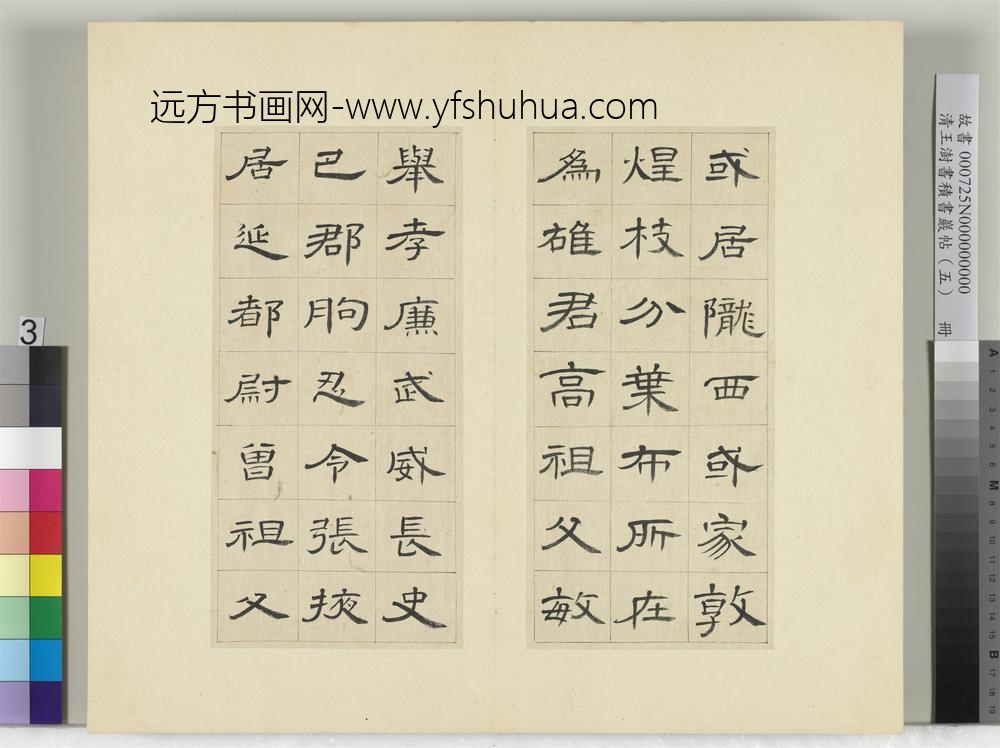 远方书画网-www.yfshuhua.com
或居隴西或家敦
煌枝分葉布所在
為雄君高祖父敏
舉孝廉武威長史
巴郡朐忍令張掖
居延都尉曾祖父
故書 000725N000000000
清王澍書積書巖帖（五） 冊
3
A 1 2 3 4 5 6 M 8 9 10 11 12 13 14 15 B 17 18 19